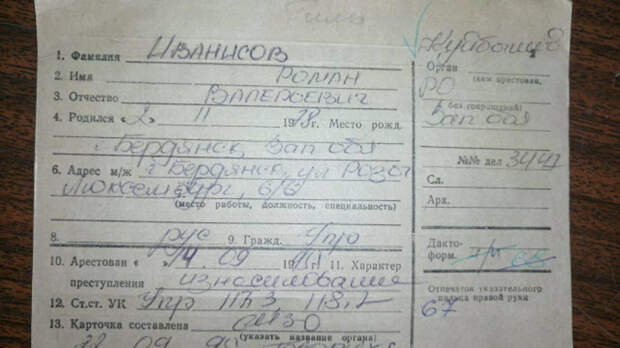 1. Фамилия Иванисов
2. Имя Роман
3. Отчество Валерьевич
4. Родился « 2 » 11 19 г. Место рожд.
г. Бердянск, Зап обл
6. Адрес м/ж г. Бердянск, ул Розы
Люксембург, 6/6
(место работы, должность, специальность)
8. рус 9. Гражд. Укр
10. Арестован « 14 09 19 г. 11. Характер
преступления изнасилование
12. Ст.ст. УК Укр 117.3 118.2
13. Карточка составлена СИЗО
(указать название органа)
22 09
Куйбышев
Орган
(кем арестован,
РО
без сокращений)
Зап обл
№№ дел 3441
Сл.
Арх.
Дакто-
форм.
Отпечаток указательного
пальца правой руки
67